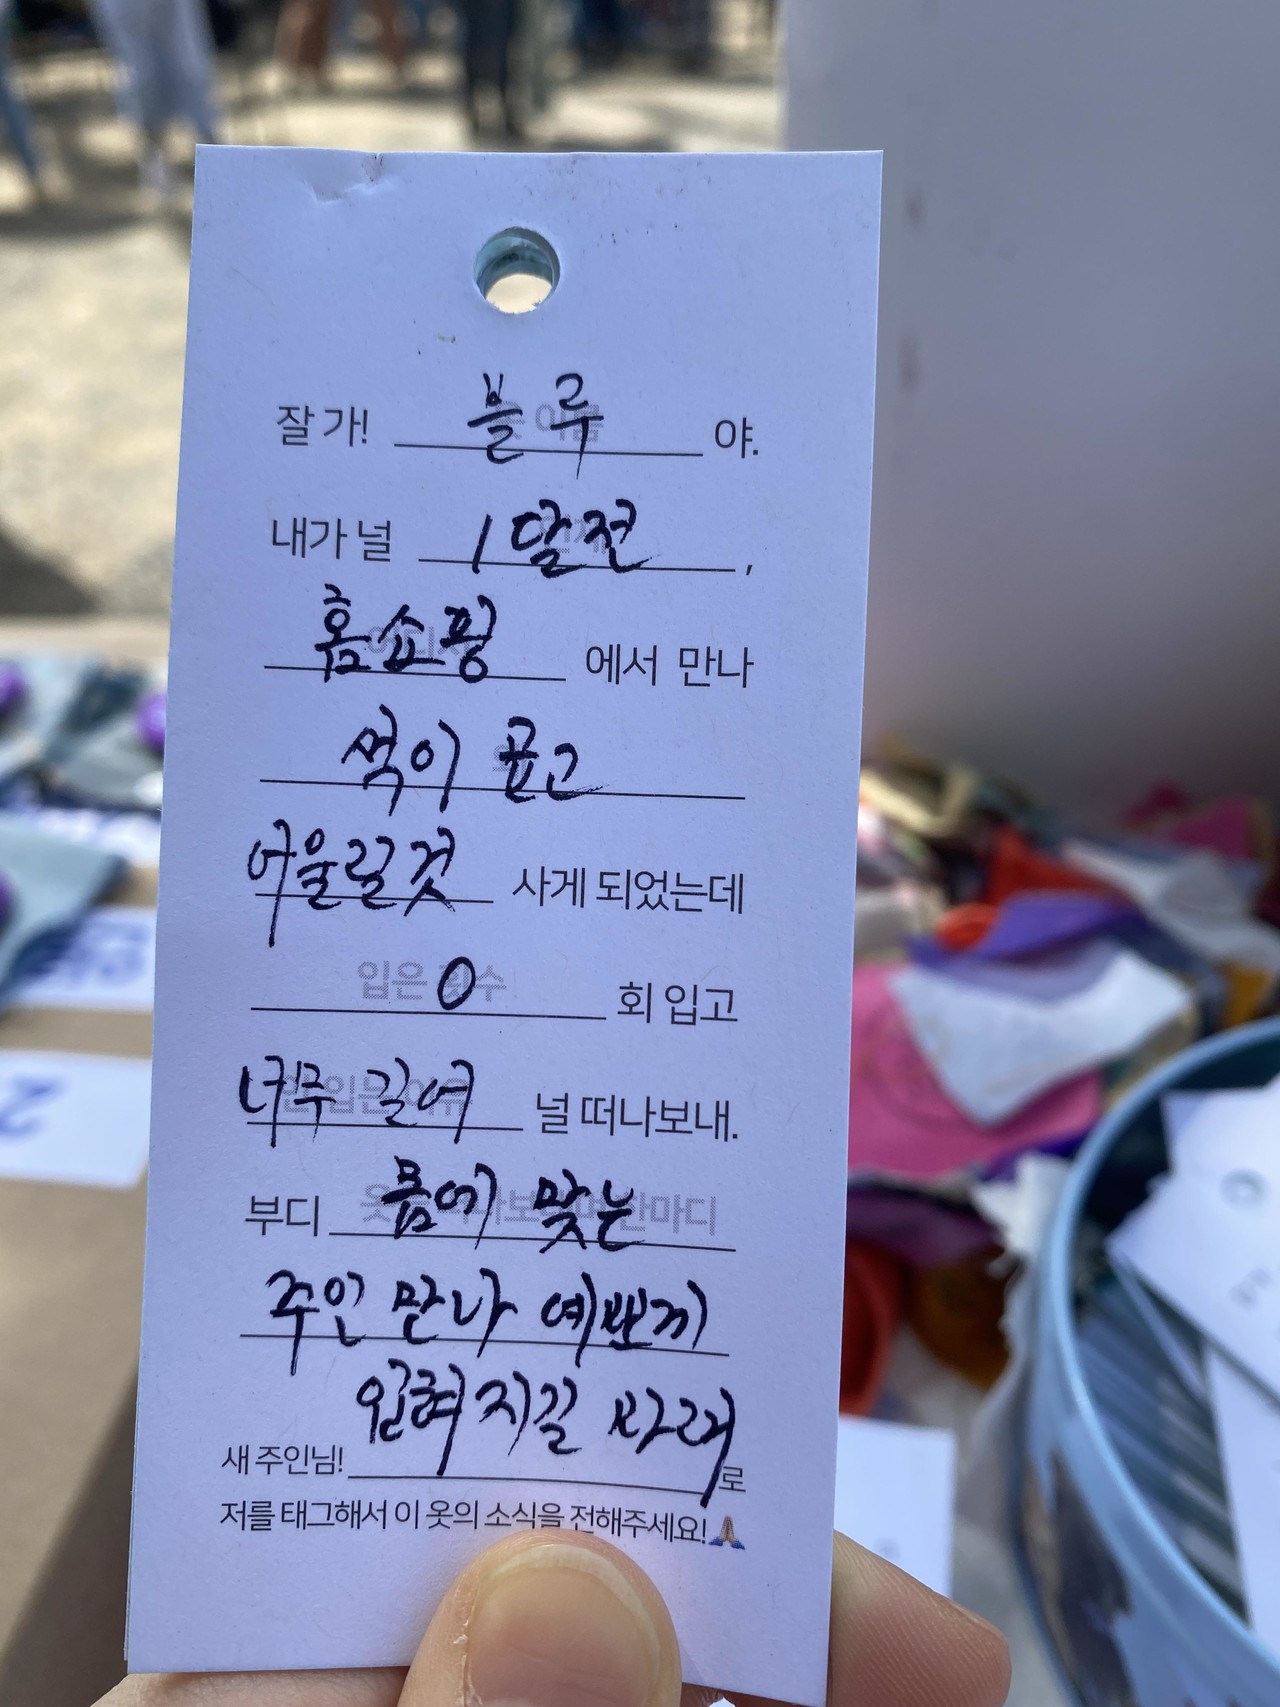 잘가! 블루 야.
내가 널 1달전,
홈쇼핑 에서 만나
이 곱고
어울릴것 사게 되었는데
0 회 입고
너무 길어 널 떠나보내.
부디 몸에 맞는
주인 만나 예쁘게
입혀지길 바래
새 주인님! 로
저를 태그해서 이 옷의 소식을 전해주세요!🙏